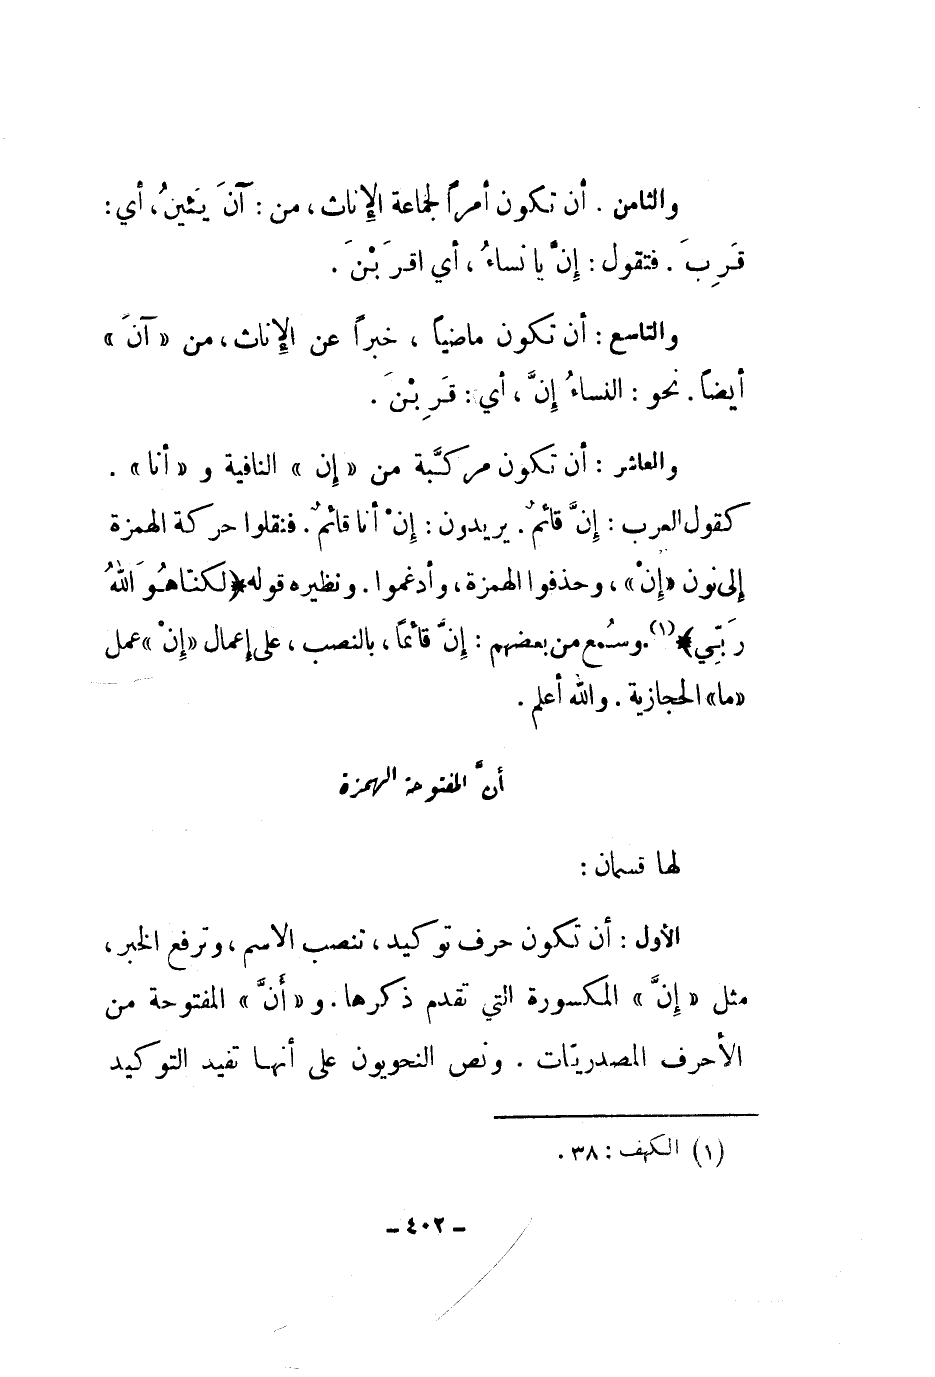 والثامن . أن تكون أمراً لجماعة الإناث ، من : آنَ يَئينُ ، أي :
قَرِبَ . فتقول : إِنَّ يا نساءُ ، أي اقرَبْنَ .
والتاسع : أن تكون ماضياً ، خبراً عن الإناث ، من « آنَ »
أيضاً . نحو : النساءُ إِنَّ ، أي : قَرِبْنَ .
والعاشر : أن تكون مركّبة من « إِن » النافية و « أنا » .
كقول العرب : إِنَّ قائمٌ . يريدون : إِنْ أنا قائمٌ . فنقلوا حركة الهمزة
إلى نون «إِنْ» ، وحذفوا الهمزة ، وأدغموا . ونظيره قوله ﴿لكنّا هُوَ اللهُ
رَبِّي﴾(١). وسُمع من بعضهم : إِنَّ قائمًا ، بالنصب ، على إعمال «إِنْ» عمل
«ما» الحجازية . والله أعلم .
أنَّ المفتوحة الهمزة
لها قسمان :
الأول : أن تكون حرف توكيد ، تنصب الاسم ، وترفع الخبر ،
مثل « إِنَّ » المكسورة التي تقدم ذكرها . و « أَنَّ » المفتوحة من
الأحرف المصدريّات . ونص النحويون على أنها تفيد التوكيد
(١) الكهف : ٣٨ .
– ٤٠٢ –